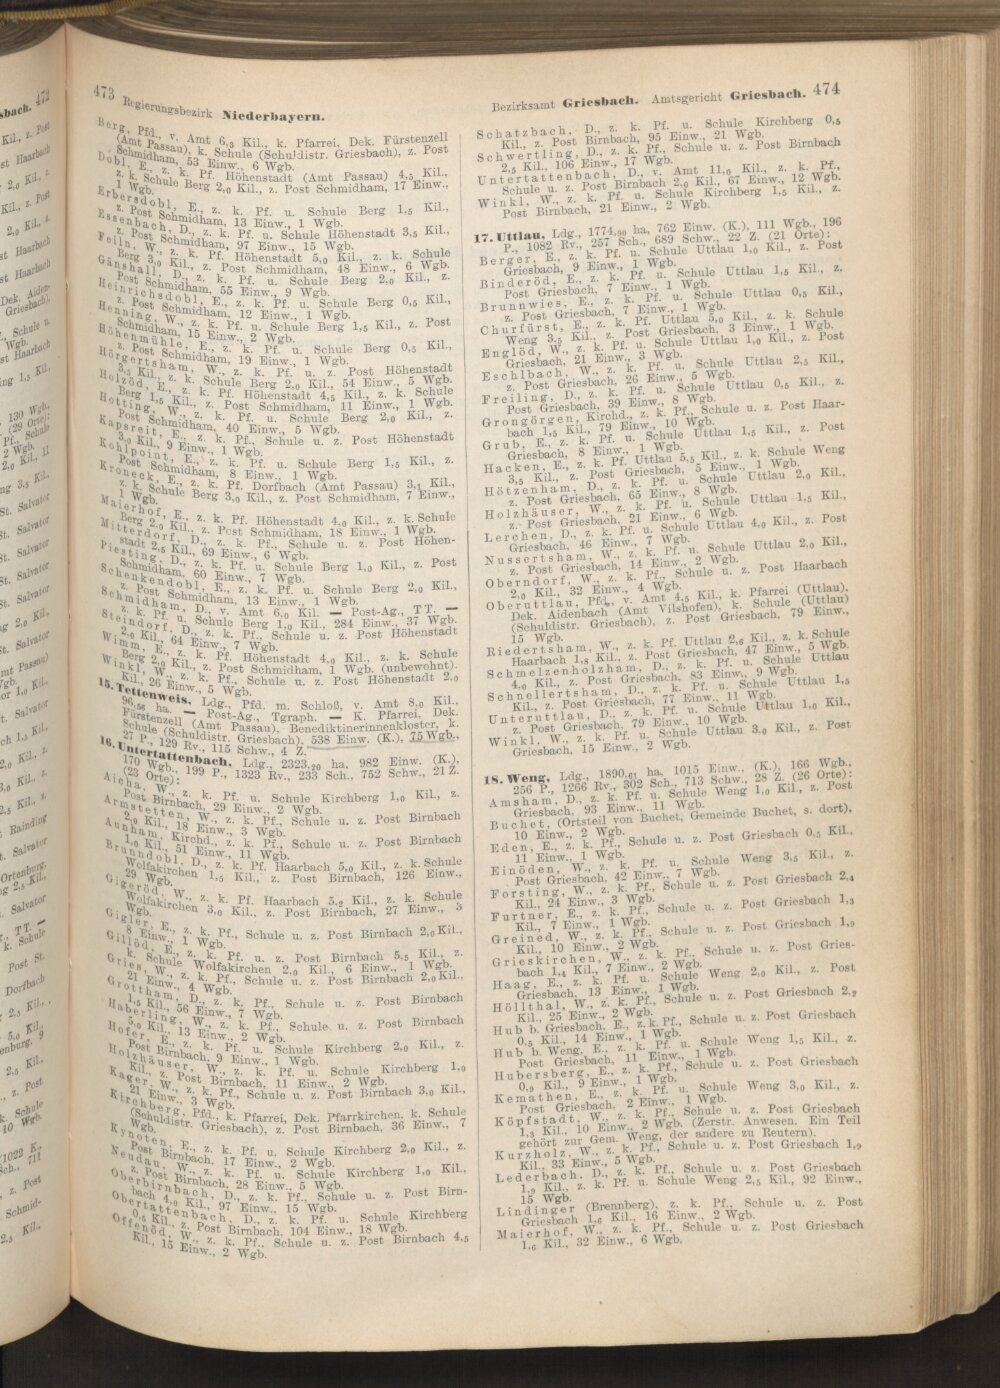 473 Regierungsbezirk Niederbayern.
Berg, Pfd., v. Amt 6,3 Kil., k. Pfarrei, Dek. Fürstenzell
(Amt Passau), k. Schule (Schuldistr. Griesbach), z. Post
Schmidham, 53 Einw., 6 Wgb.
Dobl, E., z. k. Pf. Höhenstadt (Amt Passau) 4,5 Kil.,
z. k. Schule Berg 2,0 Kil., z. Post Schmidham, 17 Einw.,
1 Wgb.
Erbersdobl, E., z. k. Pf. u. Schule Berg 1,5 Kil.,
z. Post Schmidham, 13 Einw., 1 Wgb.
Essenbach, D., z. k. Pf. u. Schule Höhenstadt 3,5 Kil.,
z. Post Schmidham, 97 Einw., 15 Wgb.
Feiln, W., z. k. Pf. Höhenstadt 5,0 Kil., z. k. Schule
Berg 3,0 Kil., z. Post Schmidham, 48 Einw., 6 Wgb.
Gänshall, D., z. k. Pf. u. Schule Berg 2,0 Kil., z.
Post Schmidham, 55 Einw., 9 Wgb.
Heinrichsdobl, E., z. k. Pf. u. Schule Berg 0,5 Kil.,
z. Post Schmidham, 12 Einw., 1 Wgb.
Henning, W., z. k. Pf. u. Schule Berg 1,5 Kil., z. Post
Schmidham, 15 Einw., 2 Wgb.
Höhenmühle, E., z. k. Pf. u. Schule Berg 0,5 Kil.,
z. Post Schmidham, 19 Einw., 1 Wgb.
Hörgertsham, W., z. k. Pf. u. z. Post Höhenstadt
3,5 Kil., z. k. Schule Berg 2,0 Kil., 54 Einw., 5 Wgb.
Holzöd, E., z. k. Pf. Höhenstadt 4,5 Kil., z. k. Schule
Berg 1,5 Kil., z. Post Schmidham, 11 Einw., 1 Wgb.
Hotting, W., z. k. Pf. u. Schule Berg 2,0 Kil., z.
Post Schmidham, 40 Einw., 5 Wgb.
Kapsreit, E., z. k. Pf., Schule u. z. Post Höhenstadt
3,0 Kil., 9 Einw., 1 Wgb.
Kohlpoint, E., z. k. Pf. u. Schule Berg 1,5 Kil., z.
Post Schmidham, 8 Einw., 1 Wgb.
Kroneck, E., z. k. Pf. Dorfbach (Amt Passau) 3,1 Kil.,
z. k. Schule Berg 3,0 Kil., z. Post Schmidham, 7 Einw.,
1 Wgb.
Maierhof, E., z. k. Pf. Höhenstadt 4,0 Kil., z. k. Schule
Berg 2,0 Kil., z. Post Schmidham, 18 Einw., 1 Wgb.
Mitterdorf, D., z. k. Pf., Schule u. z. Post Höhen-
stadt 2,5 Kil., 69 Einw., 6 Wgb.
Piesting, D., z. k. Pf. u. Schule Berg 1,0 Kil., z. Post
Schmidham, 60 Einw., 7 Wgb.
Schenkendobl, E., z. k. Pf. u. Schule Berg 2,0 Kil.,
z. Post Schmidham, 13 Einw., 1 Wgb.
Schmidham, D., v. Amt 6,0 Kil. — Post-Ag., TT. —
z. k. Pf. u. Schule Berg 1,0 Kil., 284 Einw., 37 Wgb.
Steindorf, D., z. k. Pf., Schule u. z. Post Höhenstadt
2,0 Kil., 64 Einw., 7 Wgb.
Wimm, E., z. k. Pf. Höhenstadt 4,0 Kil., z. k. Schule
Berg 2,0 Kil., z. Post Schmidham, 1 Wgb. (unbewohnt).
Winkl, W., z. k. Pf., Schule u. z. Post Höhenstadt 2,0
Kil., 26 Einw., 5 Wgb.
15. Tettenweis, Ldg., Pfd. m. Schloß, v. Amt 8,0 Kil.,
96,56 ha. — Post-Ag., Tgraph. — K. Pfarrei, Dek.
Fürstenzell (Amt Passau), Benediktinerinnenkloster, k.
Schule (Schuldistr. Griesbach), 538 Einw. (K.), 75 Wgb.,
27 P., 129 Rv., 115 Schw., 4 Z.
16. Untertattenbach, Ldg., 2323,20 ha, 982 Einw. (K.),
170 Wgb., 199 P., 1323 Rv., 233 Sch., 752 Schw., 21 Z.
(23 Orte):
Aicha, W., z. k. Pf. u. Schule Kirchberg 1,0 Kil., z.
Post Birnbach, 29 Einw., 2 Wgb.
Armstetten, W., z. k. Pf., Schule u. z. Post Birnbach
2,0 Kil., 18 Einw., 3 Wgb.
Aunham, Kirchd., z. k. Pf., Schule u. z. Post Birnbach
1,0 Kil., 51 Einw., 11 Wgb.
Brunndobl, D., z. k. Pf. Haarbach 5,0 Kil., z. k. Schule
Wolfakirchen 1,5 Kil., z. Post Birnbach, 126 Einw.,
29 Wgb.
Gigeröd, W., z. k. Pf. Haarbach 5,2 Kil., z. k. Schule
Wolfakirchen 3,0 Kil., z. Post Birnbach, 27 Einw., 3
Wgb.
Gigler, E., z. k. Pf., Schule u. z. Post Birnbach 2,0 Kil.,
8 Einw., 1 Wgb.
Gillöd, E., z. k. Pf. u. z. Post Birnbach 5,5 Kil., z.
k. Schule Wolfakirchen 2,0 Kil., 6 Einw., 1 Wgb.
Gries, W., z. k. Pf., Schule u. z. Post Birnbach 2,0 Kil.,
21 Einw., 4 Wgb.
Grottham, D., z. k. Pf., Schule u. z. Post Birnbach
1,5 Kil., 56 Einw., 7 Wgb.
Haberling, W., z. k. Pf., Schule u. z. Post Birnbach
3,0 Kil., 13 Einw., 2 Wgb.
Hofer, E., z. k. Pf. u. Schule Kirchberg 2,0 Kil., z.
Post Birnbach, 9 Einw., 1 Wgb.
Holzhäuser, W., z. k. Pf. u. Schule Kirchberg 1,0
Kil., z. Post Birnbach, 11 Einw., 2 Wgb.
Kager, W., z. k. Pf., Schule u. z. Post Birnbach 3,0 Kil.,
21 Einw., 3 Wgb.
Kirchberg, Pfd., k. Pfarrei, Dek. Pfarrkirchen, k. Schule
(Schuldistr. Griesbach), z. Post Birnbach, 36 Einw., 7
Wgb.
Kynoten, E., z. k. Pf. u. Schule Kirchberg 2,0 Kil., z.
Post Birnbach, 17 Einw., 2 Wgb.
Neudau, W., z. k. Pf. u. Schule Kirchberg 1,0 Kil.,
z. Post Birnbach, 28 Einw., 5 Wgb.
Oberbirnbach, D., z. k. Pf., Schule u. z. Post Birn-
bach 4,0 Kil., 97 Einw., 15 Wgb.
Obertattenbach, D., z. k. Pf. u. Schule Kirchberg
0,5 Kil., z. Post Birnbach, 104 Einw., 18 Wgb.
Offenöd, W., z. k. Pf., Schule u. z. Post Birnbach 4,5
Kil., 15 Einw., 2 Wgb.
Bezirksamt Griesbach. Amtsgericht Griesbach. 474
Schatzbach, D., z. k. Pf. u. Schule Kirchberg 0,5
Kil., z. Post Birnbach, 95 Einw., 21 Wgb.
Schwertling, D., z. k. Pf., Schule u. z. Post Birnbach
2,5 Kil., 106 Einw., 17 Wgb.
Untertattenbach, D., v. Amt 11,0 Kil., z. k. Pf.,
Schule u. z. Post Birnbach 2,0 Kil., 67 Einw., 12 Wgb.
Winkl, W., z. k. Pf. u. Schule Kirchberg 1,5 Kil., z.
Post Birnbach, 21 Einw., 2 Wgb.
17. Uttlau, Ldg., 1774,90 ha, 762 Einw. (K.), 111 Wgb., 196
P., 1082 Rv., 257 Sch., 689 Schw., 22 Z. (21 Orte):
Berger, E., z. k. Pf. u. Schule Uttlau 1,0 Kil., z. Post
Griesbach, 9 Einw., 1 Wgb.
Binderöd, E., z. k. Pf. u. Schule Uttlau 1,5 Kil., z.
Post Griesbach, 7 Einw., 1 Wgb.
Brunnwies, E., z. k. Pf. u. Schule Uttlau 0,5 Kil.,
z. Post Griesbach, 7 Einw., 1 Wgb.
Churfürst, E., z. k. Pf. Uttlau 5,0 Kil., z. k. Schule
Weng 3,5 Kil., z. Post Griesbach, 3 Einw., 1 Wgb.
Englöd, W., z. k. Pf. u. Schule Uttlau 1,0 Kil., z. Post
Griesbach, 21 Einw., 3 Wgb.
Eschlbach, W., z. k. Pf. u. Schule Uttlau 2,5 Kil.,
z. Post Griesbach, 26 Einw., 5 Wgb.
Freiling, D., z. k. Pf. u. Schule Uttlau 0,5 Kil., z.
Post Griesbach, 39 Einw., 8 Wgb.
Grongörgen, Kirchd., z. k. Pf., Schule u. z. Post Haar-
bach 1,5 Kil., 79 Einw., 10 Wgb.
Grub, E., z. k. Pf. u. Schule Uttlau 1,5 Kil., z. Post
Griesbach, 8 Einw., 1 Wgb.
Hacken, E., z. k. Pf. Uttlau 5,5 Kil., z. k. Schule Weng
3,5 Kil., z. Post Griesbach, 5 Einw., 1 Wgb.
Hötzenham, D., z. k. Pf. u. Schule Uttlau 2,0 Kil.,
z. Post Griesbach, 65 Einw., 8 Wgb.
Holzhäuser, W., z. k. Pf. u. Schule Uttlau 1,5 Kil.,
z. Post Griesbach, 21 Einw., 6 Wgb.
Lerchen, D., z. k. Pf. u. Schule Uttlau 4,0 Kil., z. Post
Griesbach, 46 Einw., 7 Wgb.
Nussertsham, W., z. k. Pf. u. Schule Uttlau 2,0 Kil.,
z. Post Griesbach, 14 Einw., 2 Wgb.
Oberndorf, W., z. k. Pf., Schule u. z. Post Haarbach
2,0 Kil., 32 Einw., 4 Wgb.
Oberuttlau, Pfd., v. Amt 4,5 Kil., k. Pfarrei (Uttlau),
Dek. Aidenbach (Amt Vilshofen), k. Schule (Uttlau)
(Schuldistr. Griesbach), z. Post Griesbach, 79 Einw.,
15 Wgb.
Riedertsham, W., z. k. Pf. Uttlau 2,6 Kil., z. k. Schule
Haarbach 1,8 Kil., z. Post Griesbach, 47 Einw., 5 Wgb.
Schmelzenholzham, D., z. k. Pf. u. Schule Uttlau
4,0 Kil., z. Post Griesbach, 83 Einw., 9 Wgb.
Schnellertsham, D., z. k. Pf. u. Schule Uttlau 1,5
Kil., z. Post Griesbach, 77 Einw., 11 Wgb.
Unteruttlau, D., z. k. Pf. u. Schule Uttlau 1,0 Kil.,
z. Post Griesbach, 79 Einw., 10 Wgb.
Winkl, W., z. k. Pf. u. Schule Uttlau 3,0 Kil., z. Post
Griesbach, 15 Einw., 2 Wgb.
18. Weng, Ldg., 1890,61 ha, 1015 Einw., (K.), 166 Wgb.,
256 P., 1266 Rv., 302 Sch., 713 Schw., 28 Z. (26 Orte):
Amsham, D., z. k. Pf. u. Schule Weng 1,0 Kil., z. Post
Griesbach, 93 Einw., 11 Wgb.
Buchet, (Ortsteil von Buchet, Gemeinde Buchet, s. dort),
10 Einw., 2 Wgb.
Eden, E., z. k. Pf., Schule u. z. Post Griesbach 0,5 Kil.,
11 Einw., 1 Wgb.
Einöden, W., z. k. Pf. u. Schule Weng 3,5 Kil., z.
Post Griesbach, 42 Einw., 7 Wgb.
Forsting, W., z. k. Pf., Schule u. z. Post Griesbach 2,4
Kil., 24 Einw., 3 Wgb.
Furtner, E., z. k. Pf., Schule u. z. Post Griesbach 1,3
Kil., 7 Einw., 1 Wgb.
Greined, W., z. k. Pf., Schule u. z. Post Griesbach 1,9
Kil., 10 Einw., 2 Wgb.
Grieskirchen, W., z. k. Pf., Schule u. z. Post Gries-
bach 1,4 Kil., 7 Einw., 2 Wgb.
Haag, E., z. k. Pf. u. Schule Weng 2,0 Kil., z. Post
Griesbach, 13 Einw., 1 Wgb.
Höllthal, W., z. k. Pf., Schule u. z. Post Griesbach 2,2
Kil., 25 Einw., 2 Wgb.
Hub b. Griesbach, E., z. k. Pf., Schule u. z. Post Griesbach
0,5 Kil., 14 Einw., 1 Wgb.
Hub b. Weng, E., z. k. Pf. u. Schule Weng 1,5 Kil., z.
Post Griesbach, 11 Einw., 1 Wgb.
Hubersberg, E., z. k. Pf., Schule u. z. Post Griesbach
0,9 Kil., 9 Einw., 1 Wgb.
Kemathen, E., z. k. Pf. u. Schule Weng 3,0 Kil., z.
Post Griesbach, 2 Einw., 1 Wgb.
Köpfstadt, W., z. k. Pf., Schule u. z. Post Griesbach
1,3 Kil., 10 Einw., 2 Wgb. (Zerstr. Anwesen. Ein Teil
gehört zur Gem. Weng, der andere zu Reutern).
Kurzholz, W., z. k. Pf., Schule u. z. Post Griesbach 1,9
Kil., 33 Einw., 5 Wgb.
Lederbach, D., z. k. Pf., Schule u. z. Post Griesbach
1,9 Kil., z. k. Pf. u. Schule Weng 2,5 Kil., 92 Einw.,
15 Wgb.
Lindinger (Brennberg), z. k. Pf., Schule u. z. Post
Griesbach 1,6 Kil., 16 Einw., 2 Wgb.
Maierhof, W., z. k. Pf., Schule u. z. Post Griesbach
1,6 Kil., 32 Einw., 6 Wgb.